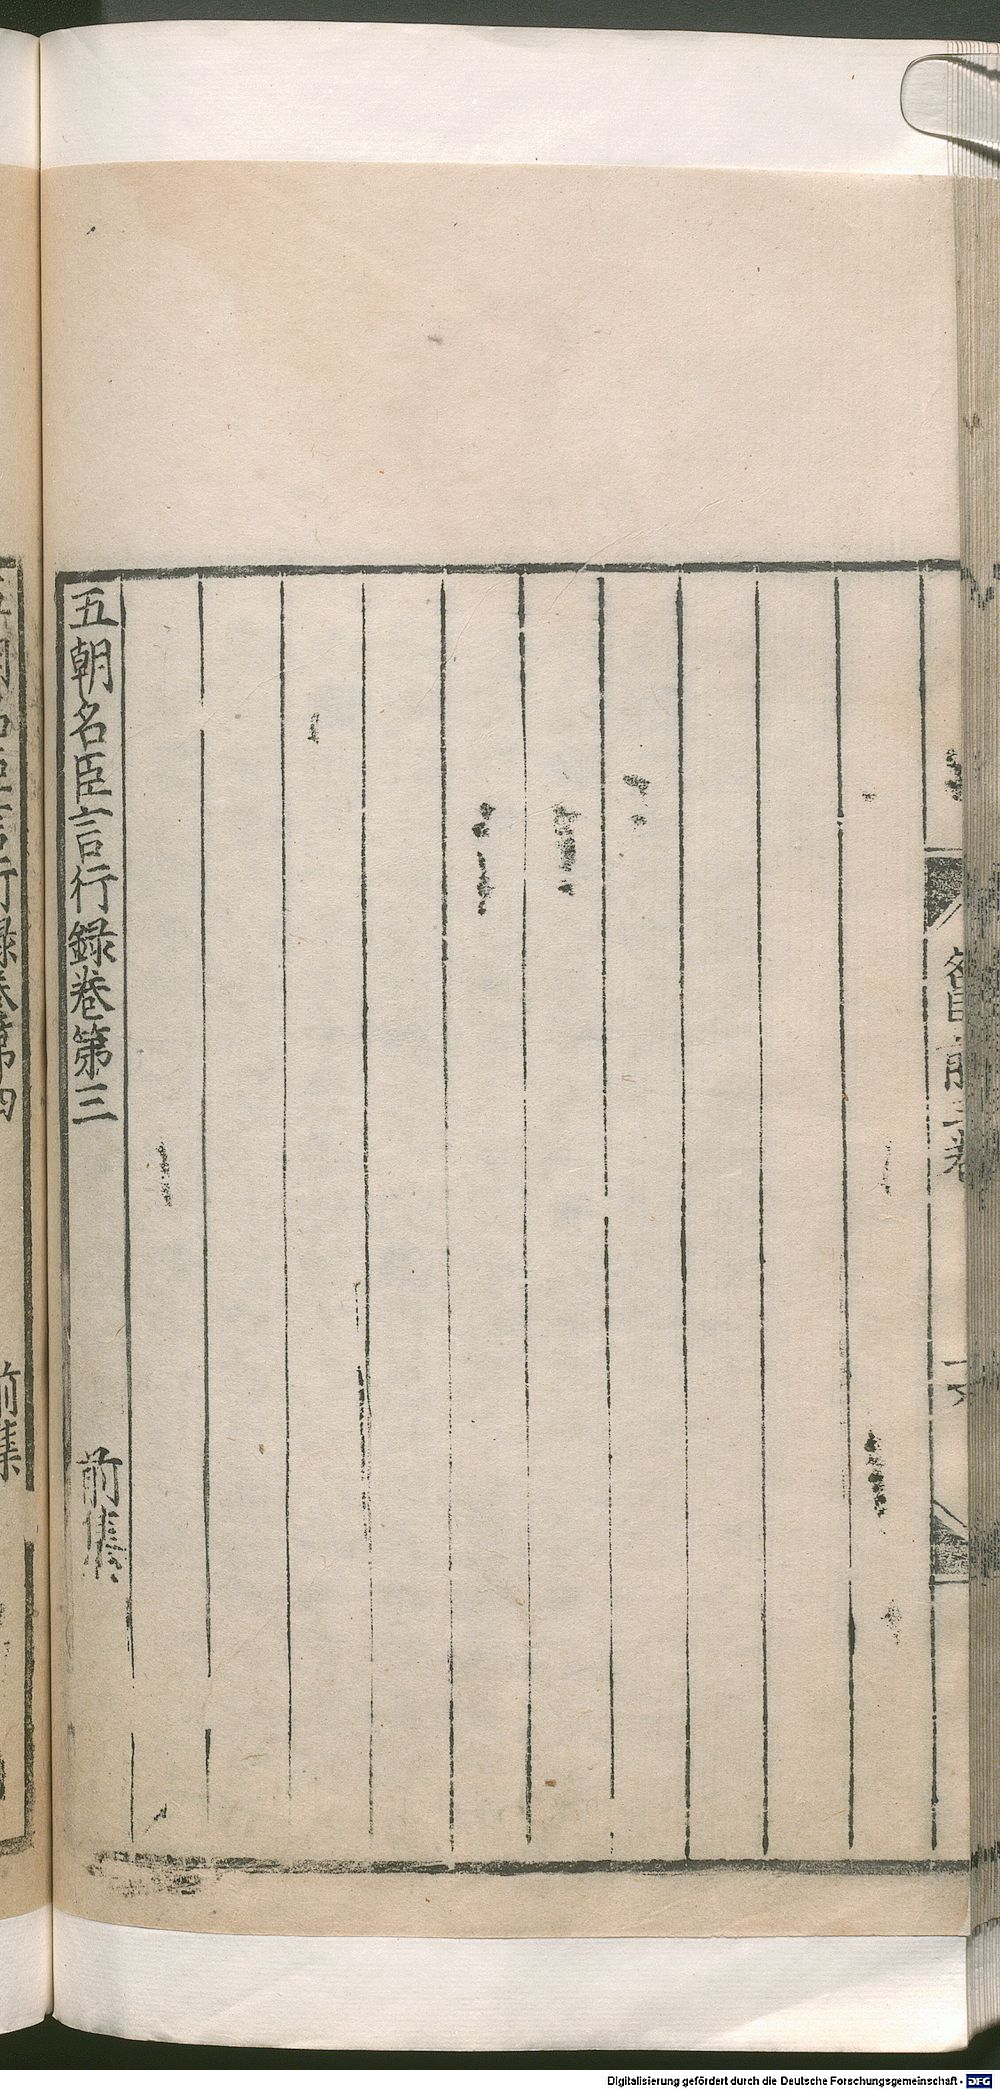 名臣前三卷
五朝名臣言行録卷第三　前集
五朝名臣言行録卷第四　前集
Digitalisierung gefördert durch die Deutsche Forschungsgemeinschaft - DFG